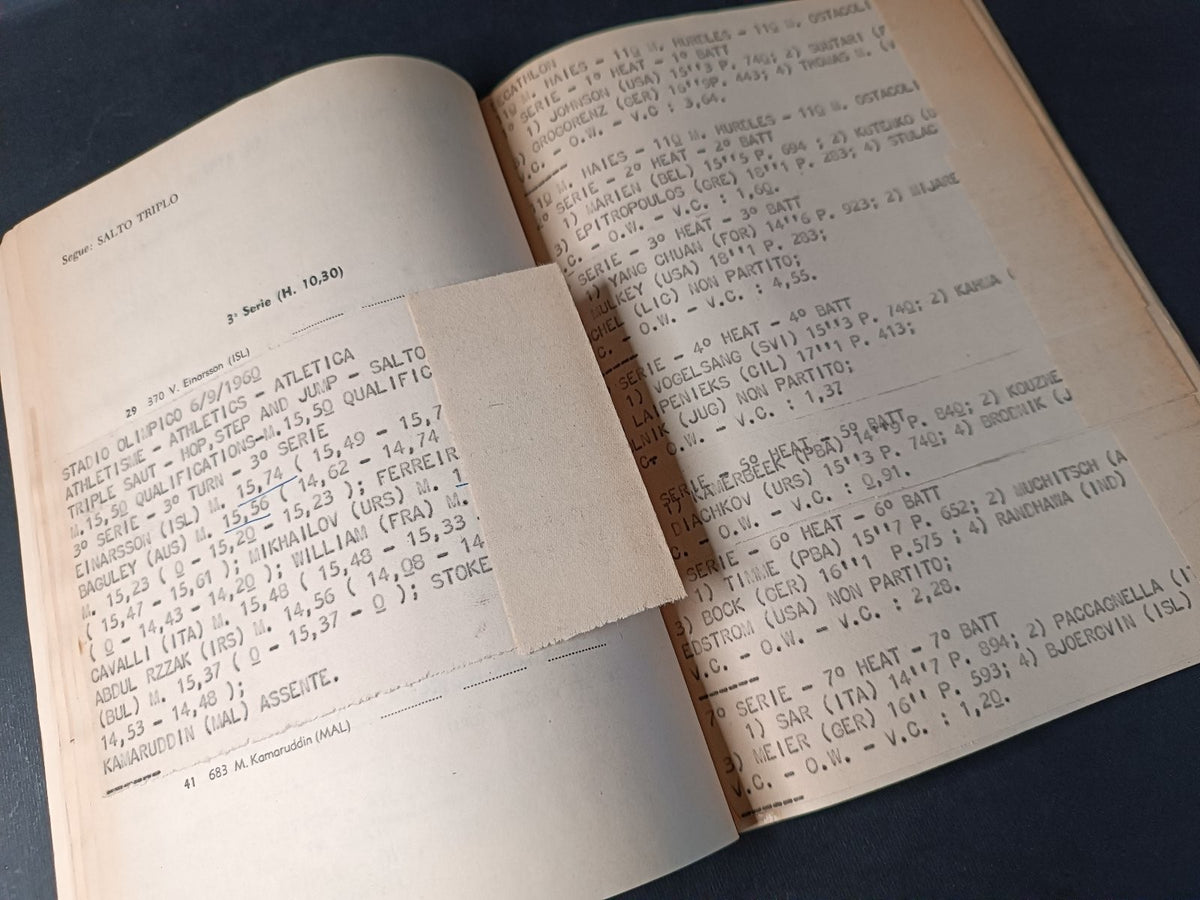 Segue: SALTO TRIPLO
3ª Serie (H. 10,30)
29 370 V. Einarsson (ISL)
STADIO OLIMPICO 6/9/1960
ATHLETISME - ATHLETICS - ATLETICA
TRIPLE SAUT - HOP,STEP AND JUMP - SALTO
M.15,50 QUALIFICATIONS-M.15,50 QUALIFIC
3º SERIE - 3º TURN - 3º SERIE
EINARSSON (ISL) M. 15,74 ( 15,49 - 15,7
BAGULEY (AUS) M. 15,56 ( 14,62 - 14,74
M. 15,23 ( 0 - 15,20 - 15,23 ); FERREIR
( 15,47 - 15,61 ); MIKHAILOV (URS) M. 1
( 0 - 14,43 - 14,20 ); WILLIAM (FRA) M.
CAVALLI (ITA) M. 15,48 ( 15,48 - 15,33
ABDUL RZZAK (IRS) M. 14,56 ( 14,08 - 14
(BUL) M. 15,37 ( 0 - 15,37 - 0 ); STOKE
14,53 - 14,48 );
KAMARUDDIN (MAL) ASSENTE.
41 683 M. Kamaruddin (MAL)
ECATHLON
110 M. HAIES - 110 M. HURDLES - 110 M. OSTACOLI
º SERIE - 1º HEAT - 1º BATT
1) JOHNSON (USA) 15''3 P. 740; 2) SUUTARI (F
3) GROGORENZ (GER) 16''9P. 443; 4) THOMAS M. (V
V.C. - O.W. - V.C : 3,64.
110 M. HAIES - 110 M. HURDLES - 110 M. OSTACOLI
2º SERIE - 2º HEAT - 2º BATT
1) MARIEN (BEL) 15''5 P. 694 ; 2) KUTENKO (U
3) EPITROPOULOS (GRE) 18''1 P. 283; 4) STULAC
.C. - O.W. - V.C. : 1,60.
SERIE - 3º HEAT - 3º BATT
1) YANG CHUAN (FOR) 14''6 P. 923; 2) MIJARE
MULKEY (USA) 18''1 P. 283;
CHEL (LIC) NON PARTITO;
C. - O.W. - V.C. : 4,55.
SERIE - 4º HEAT - 4º BATT
1) VOGELSANG (SVI) 15''3 P. 740; 2) KAHMA (
LAIPENIEKS (CIL) 17''1 P. 413;
LNIK (JUG) NON PARTITO;
C. O.W. - V.C. : 1,37
SERIE - 5º HEAT - 5º BATT
1) KAMERBEEK (PBA) 14''9 P. 840; 2) KOUZNE
DIACHKOV (URS) 15''3 P. 740; 4) BRODNIK (J
C. - O.W. - V.C. : 0,91.
SERIE - 6º HEAT - 6º BATT
1) TIMME (PBA) 15''7 P. 652; 2) MUCHITSCH (A
3) BOCK (GER) 16''1 P.575 ; 4) RANDHAWA (IND)
EDSTROM (USA) NON PARTITO;
V.C. - O.W. - V.C. : 2,28.
7º SERIE - 7º HEAT - 7º BATT
1) SAR (ITA) 14''7 P. 894; 2) PACCAGNELLA (IT
3) MEIER (GER) 16'' P. 593; 4) BJOERGVIN (ISL)
V.C. - O.W. - V.C. : 1,20.